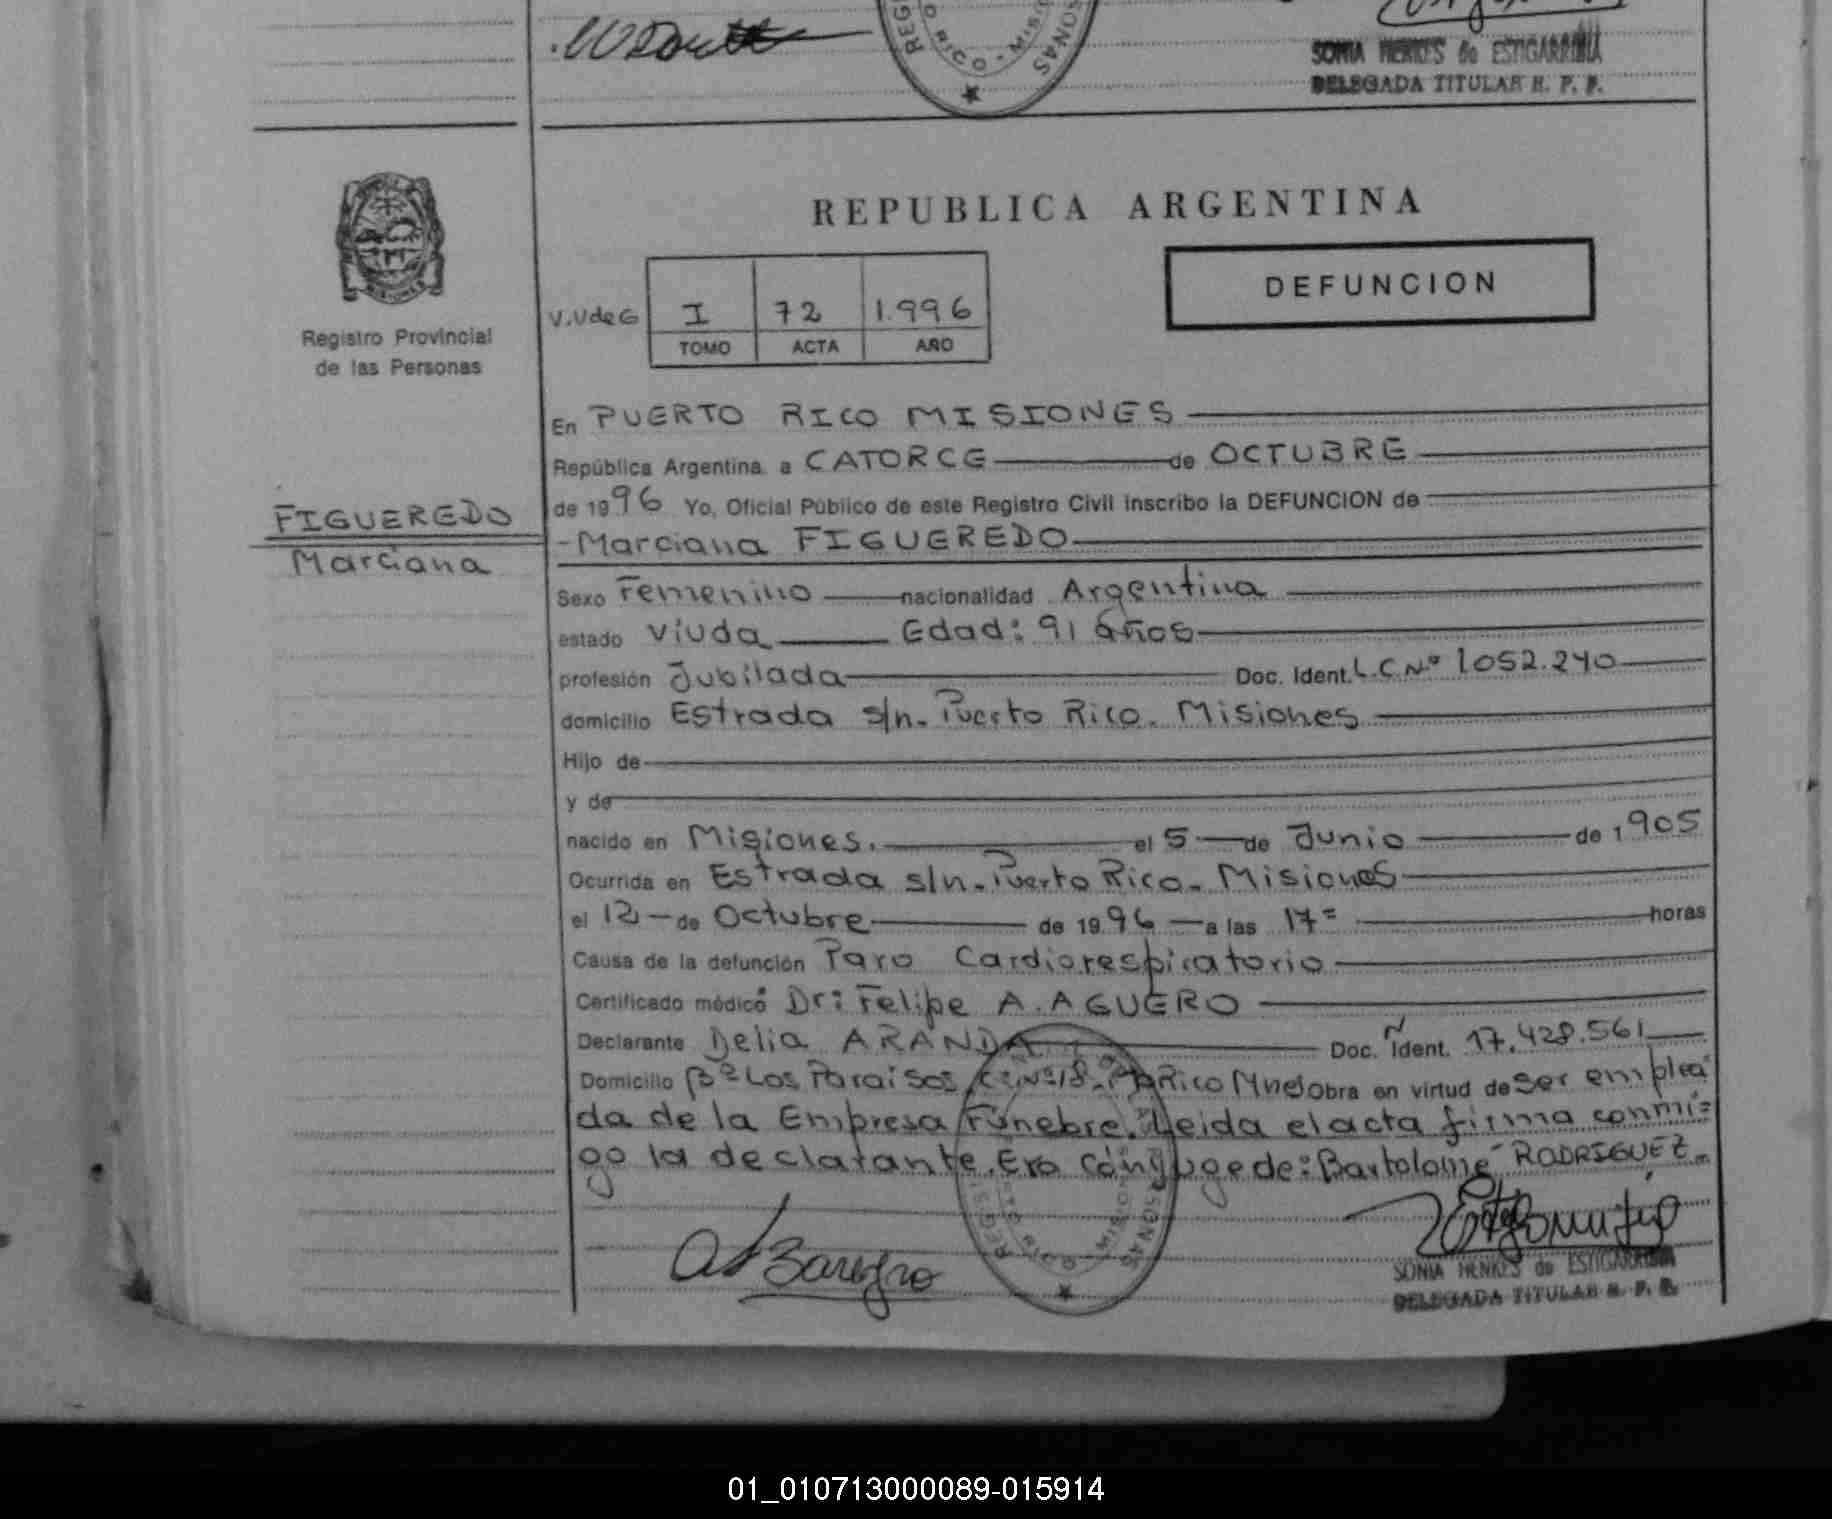 SONIA HENKES de ESTIGARRIBIA
DELEGADA TITULAR R. P. P.
REPUBLICA ARGENTINA
DEFUNCION
Registro Provincial
de las Personas
V.V de G
I 72 1.996
TOMO ACTA AÑO
En PUERTO RICO MISIONES
República Argentina a CATORCE de OCTUBRE
de 1996 Yo, Oficial Público de este Registro Civil inscribo la DEFUNCION de
FIGUEREDO
Marciana
- Marciana FIGUEREDO
Sexo Femenino nacionalidad Argentina
estado Viuda Edad: 91 años
profesión Jubilada Doc. Ident. L.C Nº 1052.240
domicilio Estrada s/n. Puerto Rico. Misiones
Hijo de
y de
nacido en Misiones. el 5 de Junio de 1905
Ocurrida en Estrada s/n. Puerto Rico. Misiones
el 12 de Octubre de 1996 a las 17= horas
Causa de la defunción Paro Cardiorespiratorio
Certificado médico Dr: Felipe A. AGUERO
Declarante Delia ARANDA Doc. Ident. 17.428.561
Domicilio Bº Los Paraisos Rico Mnes obra en virtud de ser emplea
da de la Empresa Funebre. Leida el acta firma conmi=
go la declarante. Era cónyuge de: Bartolomé RODRIGUEZ
SONIA HENKES de ESTIGARRIBIA
DELEGADA TITULAR R. P. P.
01_010713000089-015914